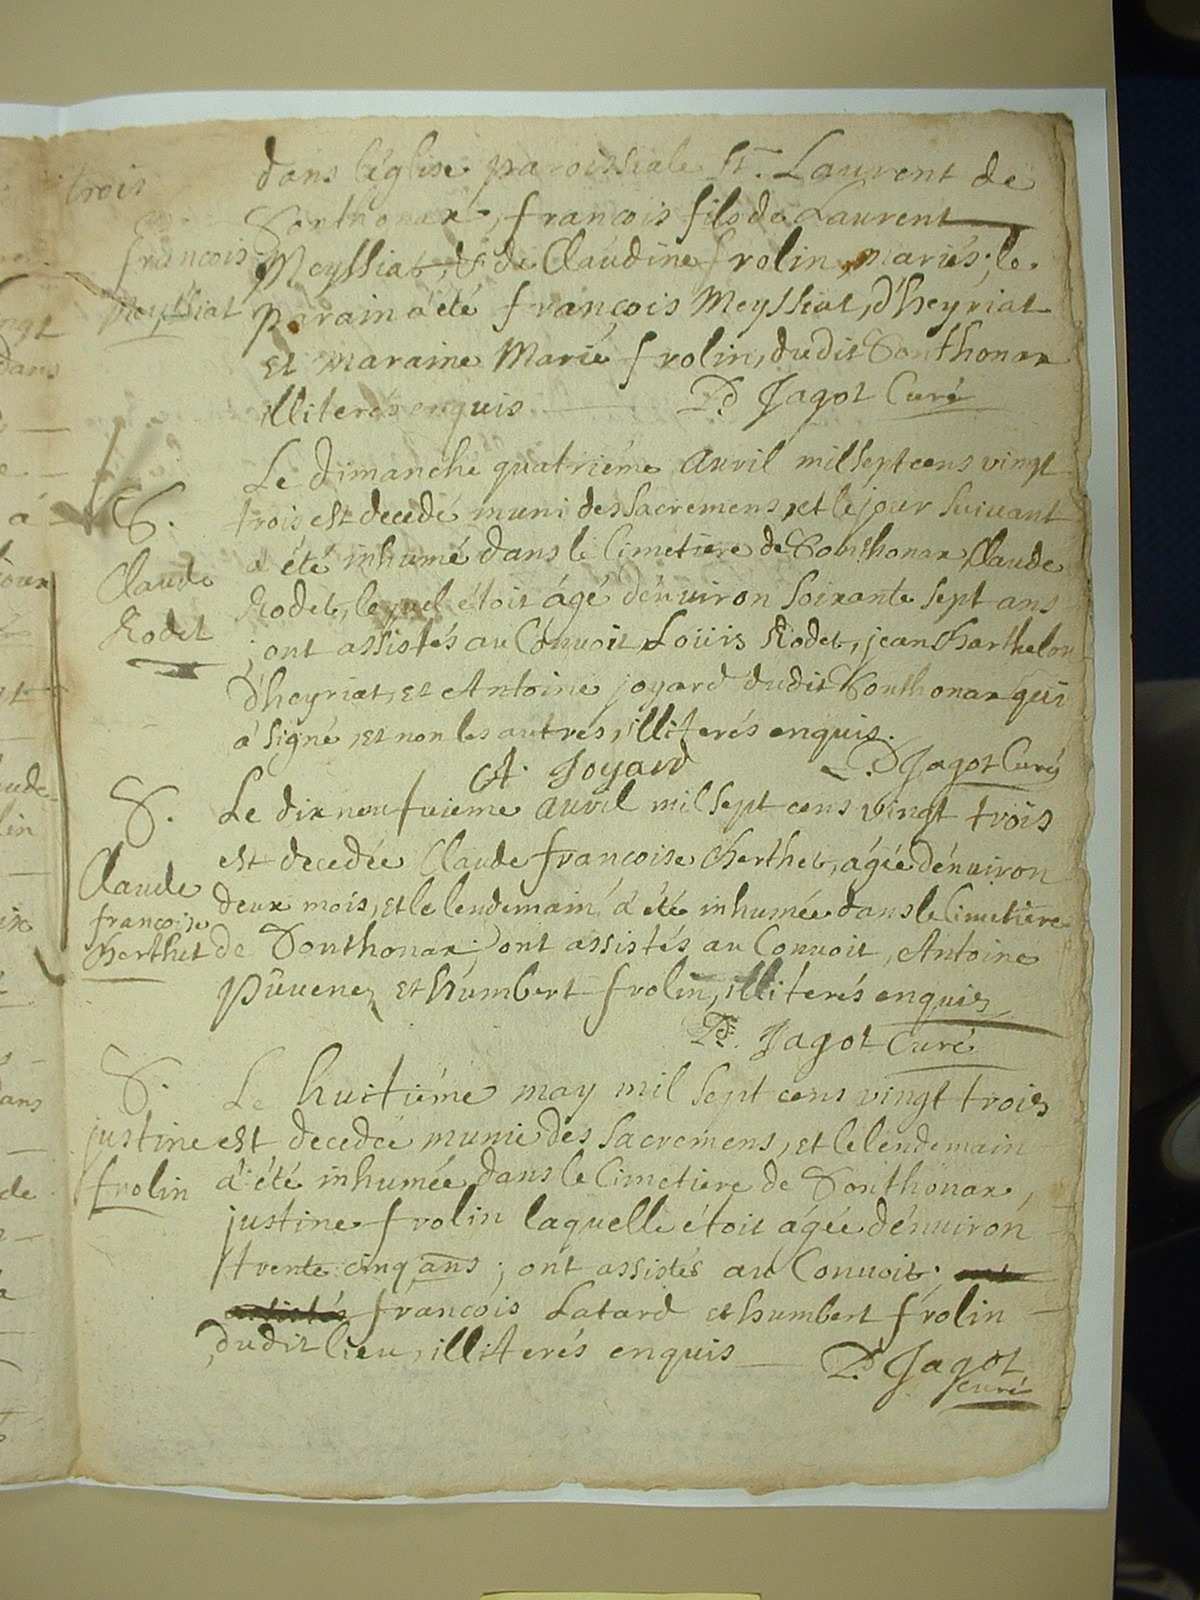 trois
dans l'église paroissiale St. Laurent de
Sonthonax, françois fils de Laurent
françois
Meyssiat, & de Claudine frolin, mariés; le
Meyssiat
parain a été françois Meyssiat, d'heyriat
et maraine Marie frolin, dudit Sonthonax
illiterés enquis Jagot Curé
Le dimanche quatriéme avril mil sept cens vingt
S.
trois est decedé muni des sacremens, et le jour suivant
a été inhumé dans le Cimetiere de Sonthonax Claude
Claude
Rodet, lequel étoit ágé d'énuiron soixante sept ans
Rodet
; ont assistés au Conuoit Loüis Rodet, jean Charthelon
d'heyriat, et Antoine joyard dudit Sonthonax qui
á signé, et non les autres, illiterés enquis.
A. Joyard Jagot Curé
S.
Le dix neufuieme avril mil sept cens vingt trois
est decedée Claude françoise Cherthet, ágée d'énuiron
Claude
françoise
Cherthet
deux mois, et le lendemain á été inhumée dans le Cimetiere
de Sonthonax; ont assistés au Conuoit, Antoine
Püuenez et humbert frolin, illiterés enquis
Jagot Curé
S.
Le huitiéme may mil sept cens vingt trois
justine
est decedée munie des sacremens, et le lendemain
frolin
á été inhumée dans le Cimetiere de Sonthonax,
justine frolin laquelle étoit ágée d'énuiron
trente cinq ans; ont assistés au Conuoit;
françois Latard et humbert frolin
dudit lieu, illiterés enquis Jagot
Curé